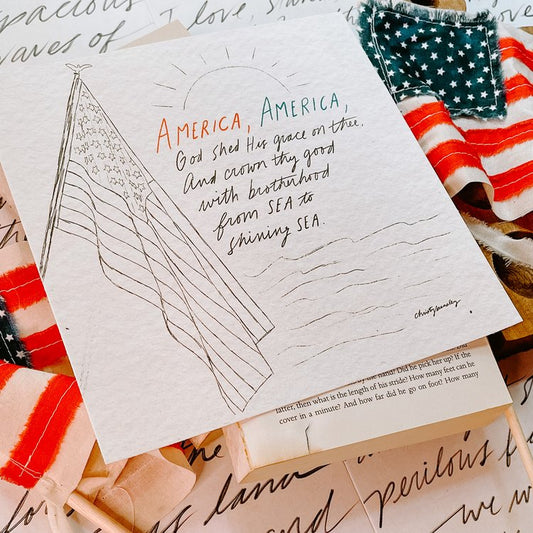 spacious
I love,
waves of
AMERICA, AMERICA,
God shed His grace on thee.
And crown thy good
with brotherhood
from SEA to
shining SEA.
the hand? Did he pick her up? If the
latter, then what is the length of his stride? How many feet can he
cover in a minute? And how far did he go on foot? How many
land
and
perilous
we